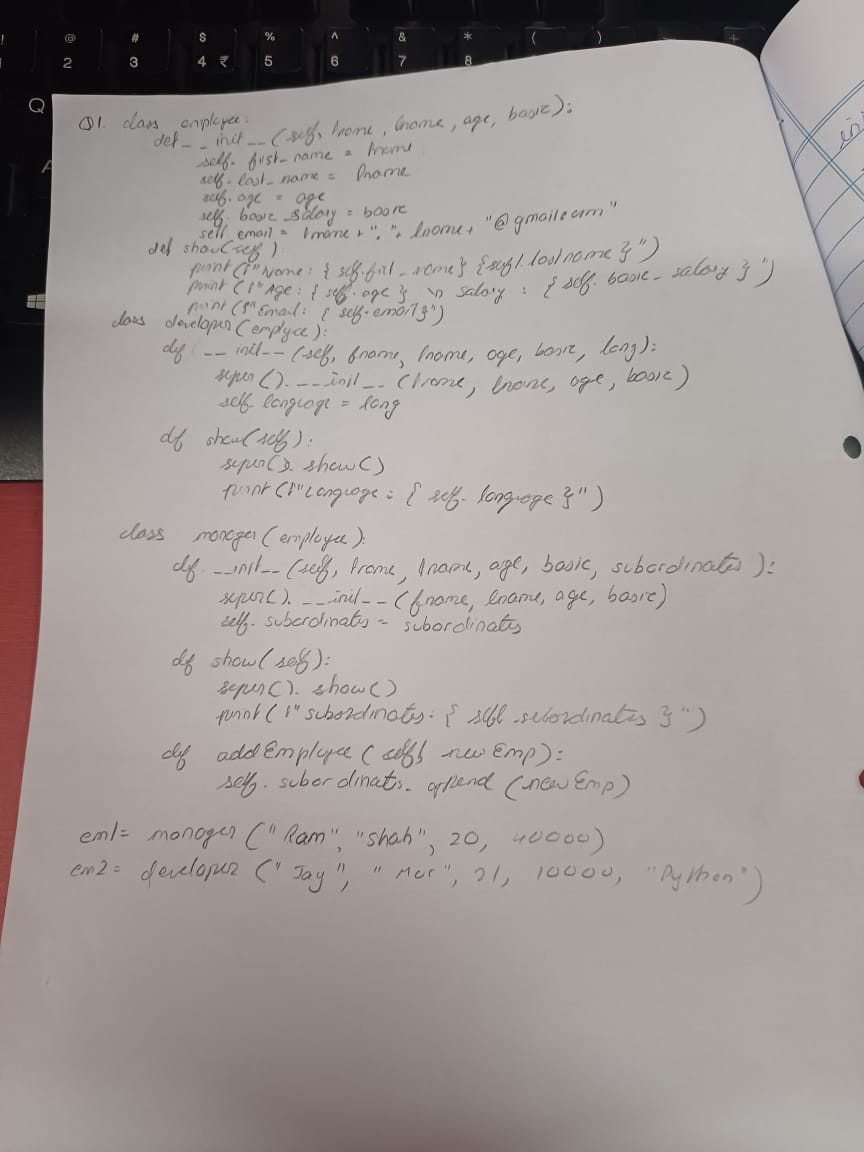 ! @ # $ % ^ & * ( ) +
2 3 4 ₹ 5 6 7 8
Q
A
Q1. class employee:
def __init__(self, fname, lname, age, basic):
self. first_name = fname
self. last_name = lname
self. age = age
self. basic_salary = basic
self email = fname + "." + lname + "@gmail.com"
def show(self)
print(f"Name: { self.first_name} {self.lastname }")
print (f"Age: { self. age } \n salary : { self. basic_salary }")
print (f"Email: { self.email}")
class developer(employee):
def __init__(self, fname, lname, age, basic, lang):
super(). __init__ (fname, lname, age, basic)
self language = lang
def show(self):
super(). show()
print (f"Language: { self. language }")
class manager(employee):
def __init__(self, fname, lname, age, basic, subordinates):
super(). __init__(fname, lname, age, basic)
self. subordinates = subordinates
def show(self):
super(). show()
print (f"subordinates: { self. subordinates }")
def addEmployee (self, newEmp):
self. subordinates. append (newEmp)
em1= manager ("Ram", "Shah", 20, 40000)
em2= developer ("Jay", 21, 10000, "Python")